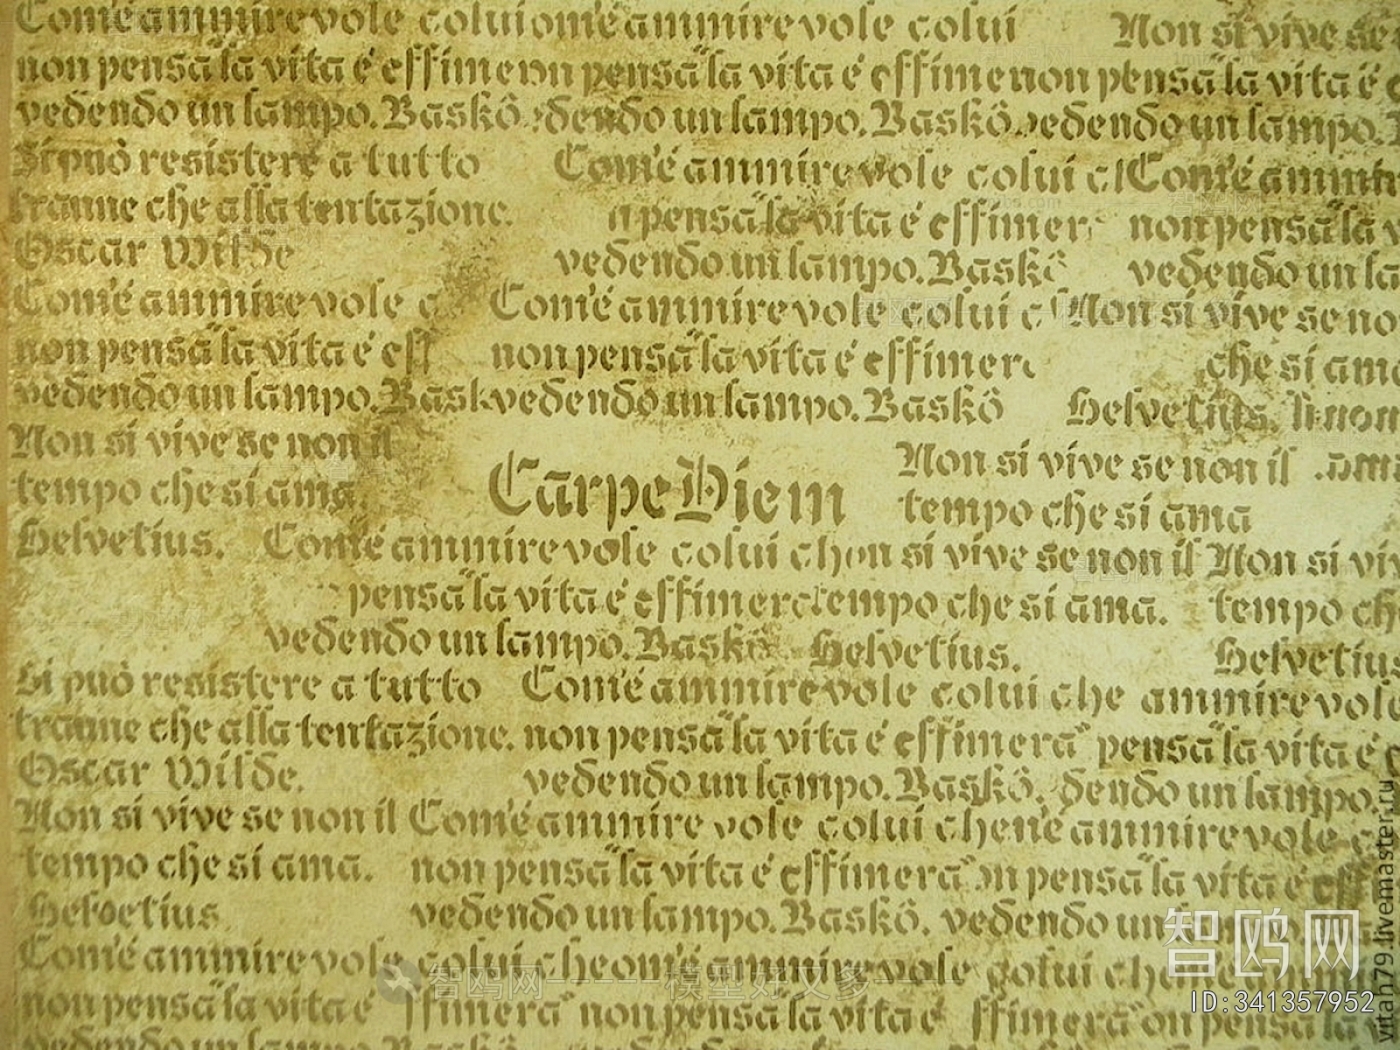 Com'é ammirevole colui om'é ammirevole colui Non si vive se
non pensa "la vita é effime non pensa "la vita é effime non pensa "la vita é e
vedendo un lampo. Baskô. edendo un lampo. Baskô. vedendo un lampo.
Si può resistere a tutto Com'é ammirevole colui c Com'é ammir
tranne che alla tentazione. n pensa "la vita é effimer non pensa "la v
Oscar Wilde vedendo un lampo. Baskô vedendo un la
Com'é ammirevole c Com'é ammirevole colui c Non si vive se no
non pensa "la vita é eff non pensa "la vita é effimer che si ama
vedendo un lampo. Bask vedendo un lampo. Baskô Helvetius.
Non si vive se non il Non si vive se non il
Carpe Diem
tempo che si ama. tempo che si ama
Helvetius. Com'é ammirevole colui ch on si vive se non il Non si viv
pensa "la vita é effimera tempo che si ama. tempo ch
vedendo un lampo. Baskô Helvetius. Helvetius
Si può resistere a tutto Com'é ammirevole colui che ammirevole
tranne che alla tentazione. non pensa "la vita é effimera" pensa "la vita é e
Oscar Wilde. vedendo un lampo. Baskô. dendo un lampo.
Non si vive se non il Com'é ammirevole colui che m'é ammirevole c
tempo che si ama. non pensa "la vita é effimera" on pensa "la vita é eff
Helvetius vedendo un lampo. Baskô. vedendo un lampo
Com'é ammirevole colui che om'é ammirevole colui che
non pensa "la vita é ffimera" non pensa "la vita é ffimera" on pensa "la v
vedendo un lampo. Baskô
智鸥网——模型好又多
智鸥网
ID:341357952
vitah79.livemaster.ru